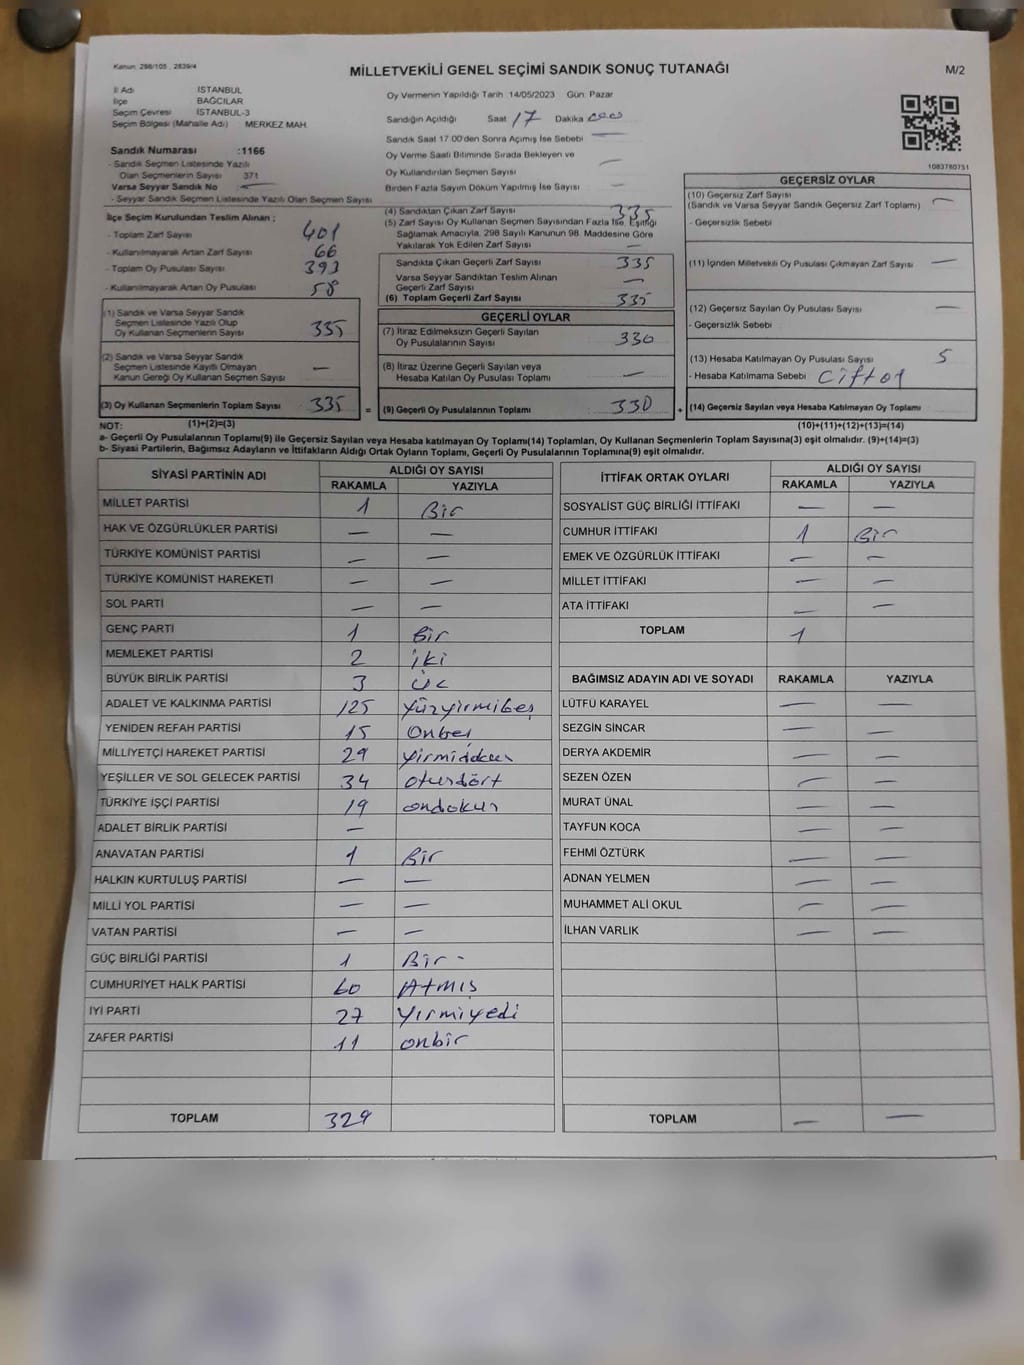 Kanun: 298/105 , 2839/4
MİLLETVEKİLİ GENEL SEÇİMİ SANDIK SONUÇ TUTANAĞI
M/2
İl Adı İSTANBUL
İlçe BAĞCILAR
Seçim Çevresi İSTANBUL-3
Seçim Bölgesi (Mahalle Adı) MERKEZ MAH.
Oy Vermenin Yapıldığı Tarih 14/05/2023 Gün: Pazar
Sandığın Açıldığı Saat 17 Dakika
Sandık Saat 17.00'den Sonra Açımış İse Sebebi —
Oy Verme Saati Bitiminde Sırada Bekleyen ve
Oy Kullandırılan Seçmen Sayısı —
Birden Fazla Sayım Döküm Yapılmış İse Sayısı —
1083780751
Sandık Numarası :1166
- Sandık Seçmen Listesinde Yazılı
Olan Seçmenlerin Sayısı 371
Varsa Seyyar Sandık No —
- Seyyar Sandık Seçmen Listesinde Yazılı Olan Seçmen Sayısı
İlçe Seçim Kurulundan Teslim Alınan ;
- Toplam Zarf Sayısı 401
- Kullanılmayarak Artan Zarf Sayısı 66
- Toplam Oy Pusulası Sayısı 393
- Kullanılmayarak Artan Oy Pusulası 58
(1) Sandık ve Varsa Seyyar Sandık
Seçmen Listesinde Yazılı Olup
Oy Kullanan Seçmenlerin Sayısı 335
(2) Sandık ve Varsa Seyyar Sandık
Seçmen Listesinde Kayıtlı Olmayan
Kanun Gereği Oy Kullanan Seçmen Sayısı —
(3) Oy Kullanan Seçmenlerin Toplam Sayısı 335 =
(4) Sandıktan Çıkan Zarf Sayısı 335
(5) Zarf Sayısı Oy Kullanan Seçmen Sayısından Fazla İse, Eşitliği
Sağlamak Amacıyla, 298 Sayılı Kanunun 98. Maddesine Göre
Yakılarak Yok Edilen Zarf Sayısı —
Sandıkta Çıkan Geçerli Zarf Sayısı 335
Varsa Seyyar Sandıktan Teslim Alınan
Geçerli Zarf Sayısı —
(6) Toplam Geçerli Zarf Sayısı 335
GEÇERLİ OYLAR
(7) İtiraz Edilmeksizin Geçerli Sayılan
Oy Pusulalarının Sayısı 330
(8) İtiraz Üzerine Geçerli Sayılan veya
Hesaba Katılan Oy Pusulası Toplamı —
(9) Geçerli Oy Pusulalarının Toplamı 330 +
GEÇERSİZ OYLAR
(10) Geçersiz Zarf Sayısı
(Sandık ve Varsa Seyyar Sandık Geçersiz Zarf Toplamı) —
- Geçersizlik Sebebi
(11) İçinden Milletvekili Oy Pusulası Çıkmayan Zarf Sayısı —
(12) Geçersiz Sayılan Oy Pusulası Sayısı —
- Geçersizlik Sebebi
(13) Hesaba Katılmayan Oy Pusulası Sayısı 5
- Hesaba Katılmama Sebebi Çiftoy
(14) Geçersiz Sayılan veya Hesaba Katılmayan Oy Toplamı
NOT: (1)+(2)=(3) (10)+(11)+(12)+(13)=(14)
a- Geçerli Oy Pusulalarının Toplamı(9) ile Geçersiz Sayılan veya Hesaba katılmayan Oy Toplamı(14) Toplamları, Oy Kullanan Seçmenlerin Toplam Sayısına(3) eşit olmalıdır. (9)+(14)=(3)
b- Siyasi Partilerin, Bağımsız Adayların ve İttifakların Aldığı Ortak Oyların Toplamı, Geçerli Oy Pusulalarının Toplamına(9) eşit olmalıdır.
SİYASİ PARTİNİN ADI ALDIĞI OY SAYISI
RAKAMLA YAZIYLA
MİLLET PARTİSİ 1 Bir
HAK VE ÖZGÜRLÜKLER PARTİSİ — —
TÜRKİYE KOMÜNİST PARTİSİ — —
TÜRKİYE KOMÜNİST HAREKETİ — —
SOL PARTİ — —
GENÇ PARTİ 1 Bir
MEMLEKET PARTİSİ 2 iki
BÜYÜK BİRLİK PARTİSİ 3 üç
ADALET VE KALKINMA PARTİSİ 125 Yüzyirmibeş
YENİDEN REFAH PARTİSİ 15 Onbeş
MİLLİYETÇİ HAREKET PARTİSİ 29 yirmidokuz
YEŞİLLER VE SOL GELECEK PARTİSİ 34 otuzdört
TÜRKİYE İŞÇİ PARTİSİ 19 ondokuz
ADALET BİRLİK PARTİSİ —
ANAVATAN PARTİSİ 1 Bir
HALKIN KURTULUŞ PARTİSİ — —
MİLLİ YOL PARTİSİ — —
VATAN PARTİSİ — —
GÜÇ BİRLİĞİ PARTİSİ 1 Bir -
CUMHURİYET HALK PARTİSİ 60 Atmış
İYİ PARTİ 27 Yirmiyedi
ZAFER PARTİSİ 11 onbir
TOPLAM 329
İTTİFAK ORTAK OYLARI ALDIĞI OY SAYISI
RAKAMLA YAZIYLA
SOSYALİST GÜÇ BİRLİĞİ İTTİFAKI — —
CUMHUR İTTİFAKI 1 Bir
EMEK VE ÖZGÜRLÜK İTTİFAKI — —
MİLLET İTTİFAKI — —
ATA İTTİFAKI — —
TOPLAM 1
BAĞIMSIZ ADAYIN ADI VE SOYADI RAKAMLA YAZIYLA
LÜTFÜ KARAYEL — —
SEZGİN SİNCAR — —
DERYA AKDEMİR — —
SEZEN ÖZEN — —
MURAT ÜNAL — —
TAYFUN KOCA — —
FEHMİ ÖZTÜRK — —
ADNAN YELMEN — —
MUHAMMET ALİ OKUL — —
İLHAN VARLIK — —
TOPLAM — —